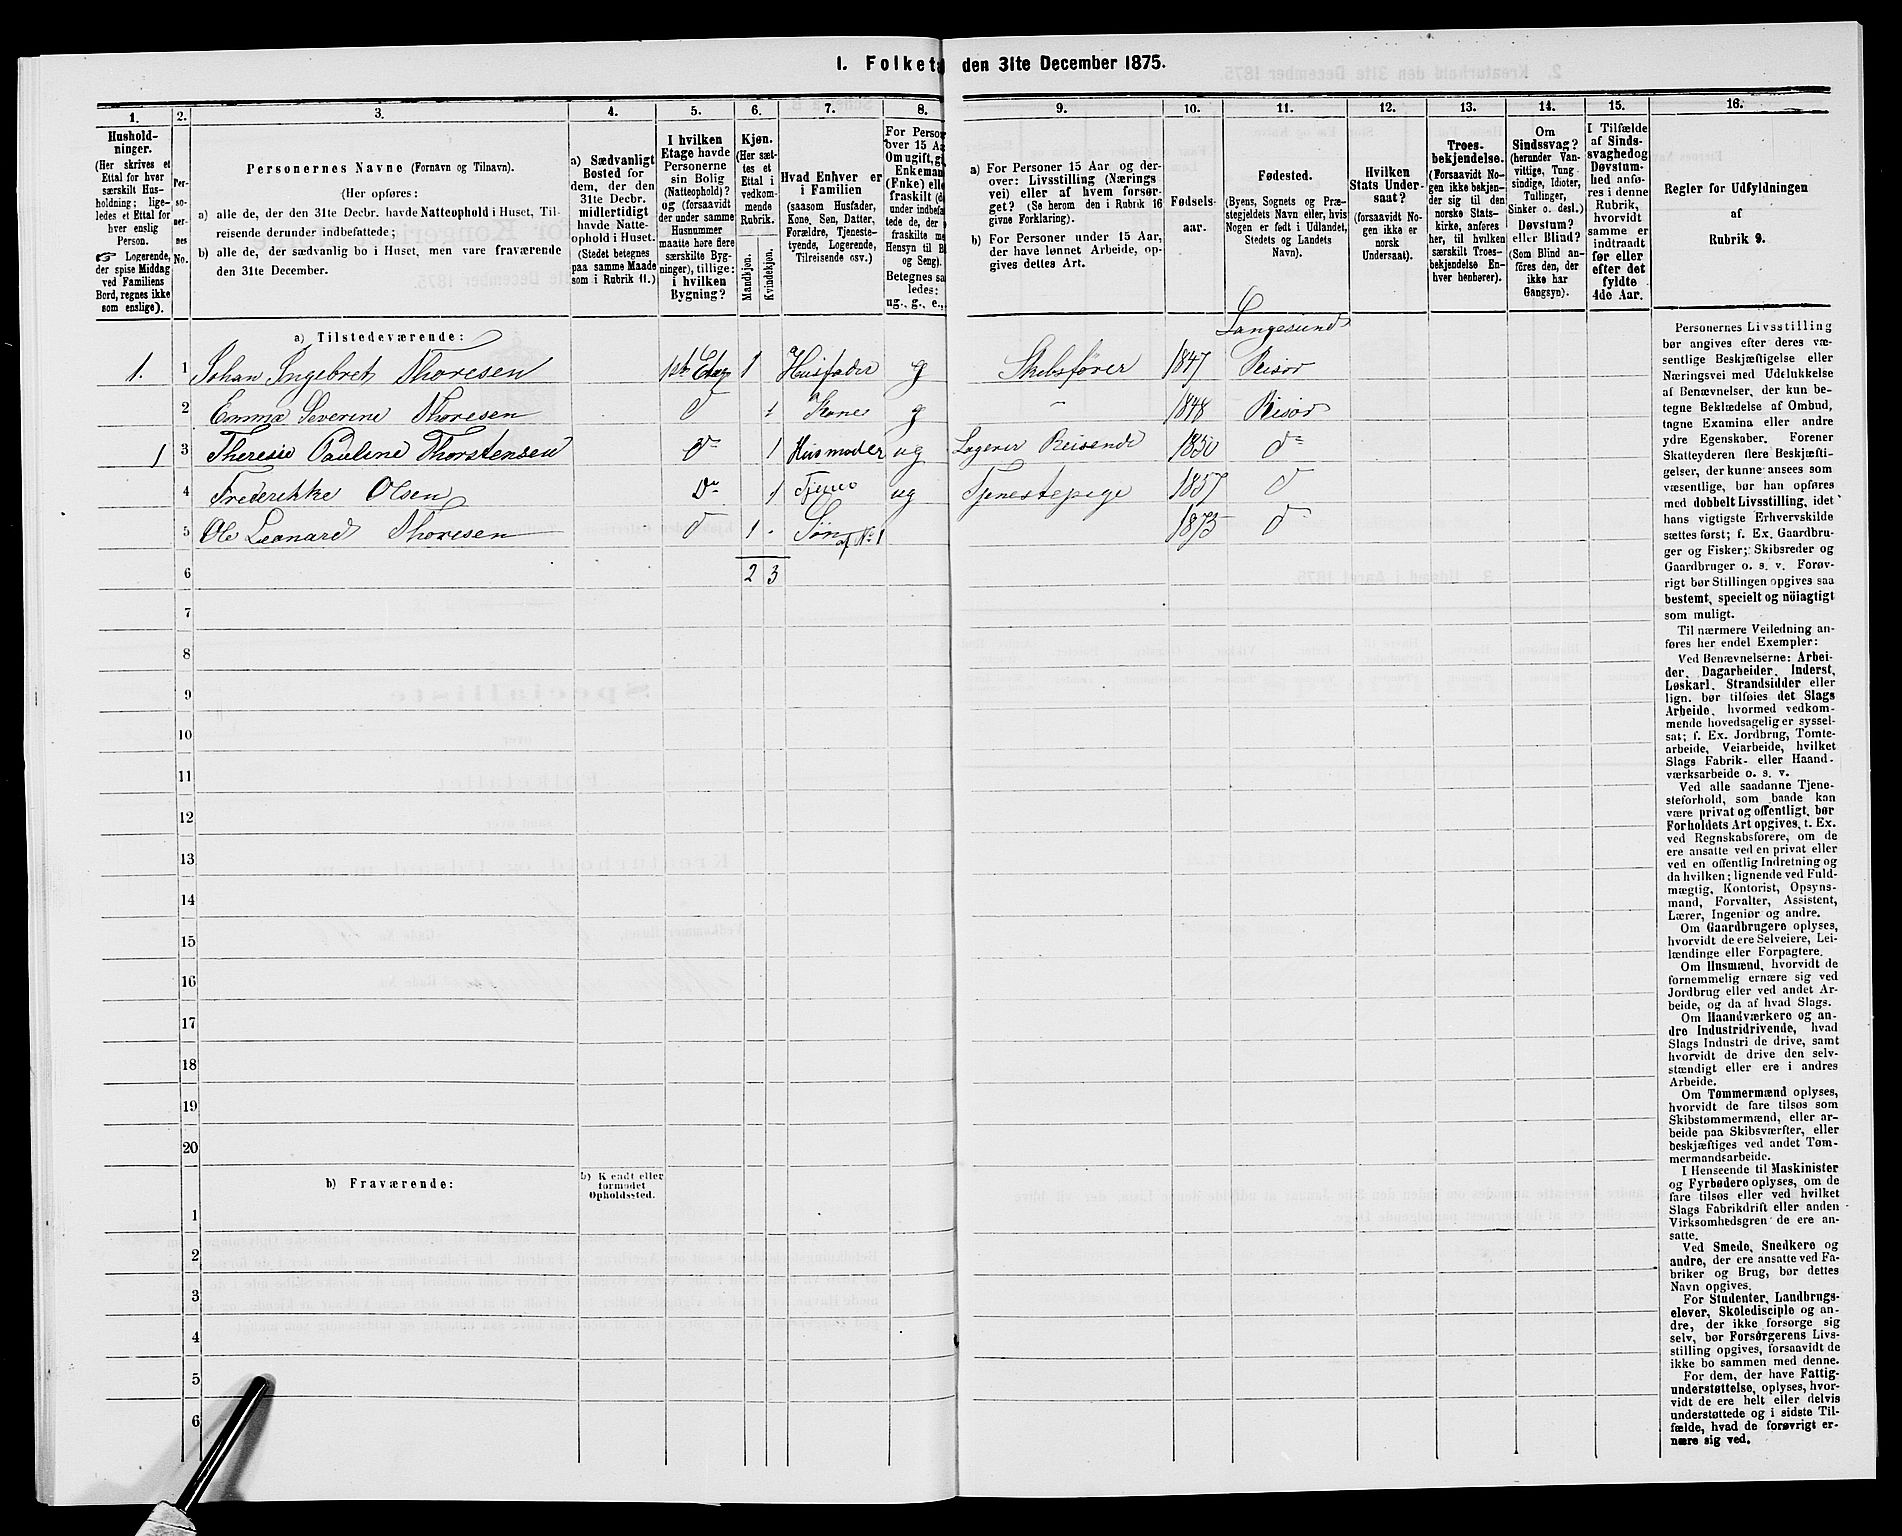 1. Folket den 31te December 1875.
1. 2. 3. 4. 5. 6. 7. 8. 9. 10. 11. 12. 13. 14. 15. 16.
Hushold-
ninger.
(Her skrives et
Ettal for hver
særskilt Hus-
holdning; lige-
ledes et Ettal for
hver enslig
Person.
☞ Logerende,
der spise Middag
ved Familiens
Bord, regnes ikke
som enslige).
Per-
so-
ner-
nes
No.
Personernes Navne (Fornavn og Tilnavn).
(Her opføres:
a) alle de, der den 31te Decbr. havde Natteophold i Huset, Til-
reisende derunder indbefattede;
b) alle de, der sædvanlig bo i Huset, men vare fraværende
den 31te December.
a) Sædvanligt
Bosted for
dem, der den
31te Decbr.
midlertidigt
havde Natte-
ophold i Huset.
(Stedet betegnes
paa samme Maade
som i Rubrik 11.)
I hvilken
Etage havde
Personerne
sin Bolig
(Natteophold)?
og (forsaavidt
der under samme
Husnummer
maatte høre flere
særskilte Byg-
ninger), tillige:
i hvilken
Bygning?
Kjøn.
(Her sæt-
tes et
Ettal i
vedkom-
mende
Rubrik.
Mandkjøn.
Kvindekjøn.
Hvad Enhver er
i Familien
(saasom Husfader,
Kone, Søn, Datter,
Forældre, Tjeneste-
tyende, Logerende,
Tilreisende osv.)
For Person
over 15 Aa
Om ugift, gi
Enkeman
(Enke) elle
fraskilt (d
under indbefat
tede de, der
fraskilte me
Hensyn til B
og Seng).
Betegnes saa
ledes:
ug., g., e.,
a) For Personer 15 Aar og der-
over: Livsstilling (Nærings
vei) eller af hvem forsør-
get? (Se herom den i Rubrik 16
givne Forklaring).
b) For Personer under 15 Aar,
der have lønnet Arbeide, op-
gives dettes Art.
Fødsels-
aar.
Fødested.
(Byens, Sognets og Præ-
stegjeldets Navn eller, hvis
Nogen er født i Udlandet,
Stedets og Landets
Navn).
Hvilken
Stats Under-
saat?
(forsaavidt No-
gen ikke er
norsk
Undersaat).
Troes-
bekjendelse.
(Forsaavidt No-
gen ikke bekjen-
der sig til den
norske Stats-
kirke, anføres
her, til hvilken
særskilt Troes-
bekjendelse En-
hver henhører).
Om
Sindssvag?
(herunder Van-
vittige, Tung
sindige, Idioter,
Tullinger,
Sinker o. desl.)
Døvstum?
eller Blind?
(Som Blind an-
føres den, der
ikke har
Gangsyn).
I Tilfælde
af Sinds-
svaghed og
Døvstum-
hed anfø-
res i denne
Rubrik,
hvorvidt
samme er
indtraadt
før eller
efter det
fyldte
4de Aar.
Regler for Udfyldningen
af
Rubrik 9.
a) Tilstedeværende:
Langesund
1. 1 Johan Ingebret Thoresen 1ste Etag 1 Husfader g Skibsfører 1847 Risør
2 Emma Severine Thoresen d 1 Kone g " 1848 Risør
1 3 Theresie Pauline Thorstensen do 1 Husmoder ug Logerer Reisende 1850 do
4 Frederikke Olsen do 1 Tjener ug Tjenestepige 1857 d
5 Ole Leonard Thoresen d 1 Søn af No 1 1873 do
6 2 3
7
8
9
10
11
12
13
14
15
16
17
18
19
20
b) Fraværende:
b) Kjendt eller
formodet
Opholdssted.
1
2
3
4
5
6
Personernes Livsstilling
bør angives efter deres væ-
sentlige Beskjæftigelse eller
Næringsvei med Udelukkelse
af Benævnelser, der kun be-
tegne Beklædelse af Ombud,
tagne Examina eller andre
ydre Egenskaber. Forener
Skatteyderen flere Beskjæfti-
gelser, der kunne ansees som
væsentlige, bør han opføres
med dobbelt Livsstilling, idet
hans vigtigste Erhvervskilde
sættes først; f. Ex. Gaardbru-
ger og Fisker; Skibsreder og
Gaardbruger o. s. v. Forøv-
rigt bør Stillingen opgives saa
bestemt, specielt og nöiagtigt
som muligt.
Til nærmere Veiledning an-
føres her endel Exempler:
Ved Benævnelserne: Arbei-
der, Dagarbeider, Inderst,
Løskarl, Strandsidder eller
lign. bør tilføies det Slags
Arbeide, hvormed vedkom-
mende hovedsagelig er syssel-
sat; f. Ex. Jordbrug, Tomte-
arbeide, Veiarbeide, hvilket
Slags Fabrik- eller Haand-
værksarbeide o. s. v.
Ved alle saadanne Tjene-
steforhold, som baade kan
være privat og offentligt, bør
Forholdets Art opgives, t. Ex.
ved Regnskabsførere, om de
ere ansatte ved en privat eller
ved en offentlig Indretning og
da hvilken; lignende ved Fuld-
mægtig, Kontorist, Opsyns-
mand, Forvalter, Assistent,
Lærer, Ingeniør og andre.
Om Gaardbrugere oplyses,
hvorvidt de ere Selveiere, Lei-
lændinge eller Forpagtere.
Om Husmænd, hvorvidt de
fornemmelig ernære sig ved
Jordbrug eller ved andet Ar-
beide, og da af hvad Slags.
Om Haandværkere og an-
dre Industridrivende, hvad
Slags Industri de drive, samt
hvorvidt de drive den selv-
stændigt eller ere i andres
Arbeide.
Om Tømmermænd oplyses,
hvorvidt de fare tilsøs som
Skibstømmermænd, eller ar-
beide paa Skibsværfter, eller
beskjæftiges ved andet Tøm-
mermandsarbeide.
I Henseende til Maskinister
og Fyrbødere oplyses, om de
fare tilsøs eller ved hvilket
Slags Fabrikdrift eller anden
Virksomhedsgren de ere an-
satte.
Ved Smede, Snedkere og
andre, der ere ansatte ved Fa-
briker og Brug, bør dettes
Navn opgives.
For Studenter, Landbrugs-
elever, Skoledisciple og an-
dre, der ikke forsørge sig
selv, bør Forsørgerens Livs-
stilling opgives, forsaavidt de
ikke bo sammen med denne.
For dem, der have Fattig-
understøttelse, oplyses, hvor-
vidt de ere helt eller delvis
understøttede og i sidste Til-
fælde, hvad de forøvrigt er-
nære sig ved.